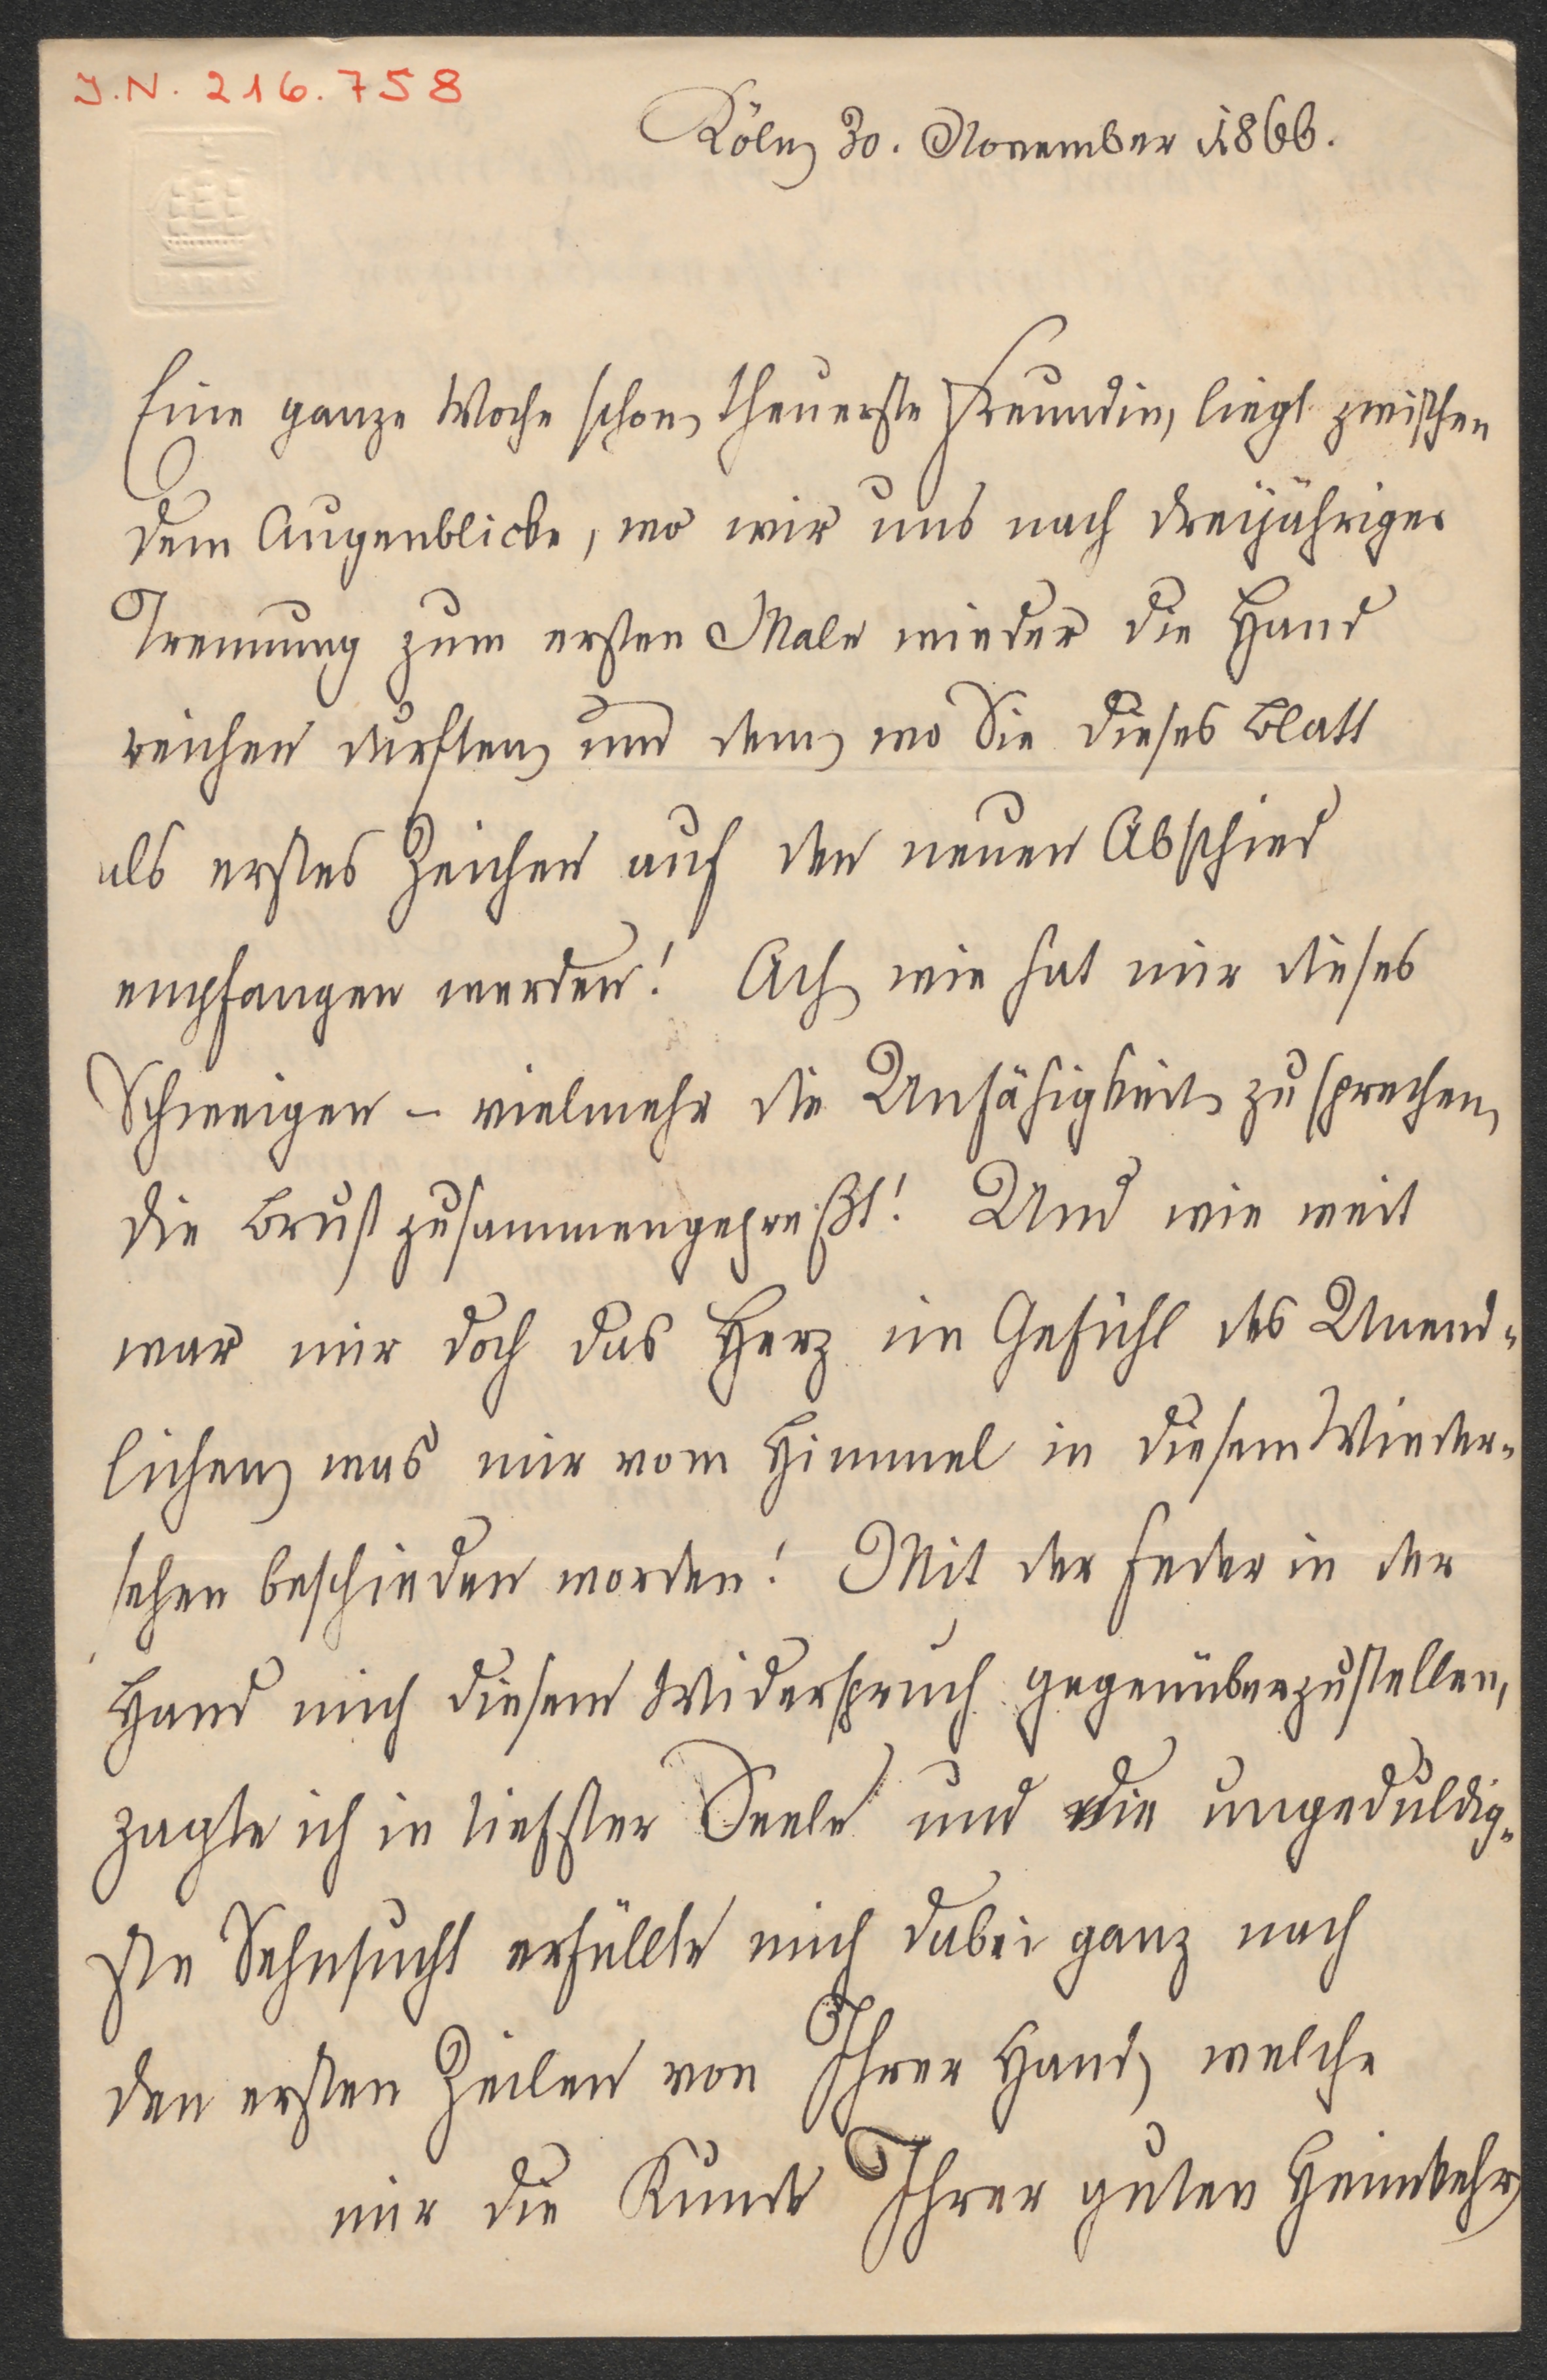 J.N. 216.758
Köln, 30. November 1866.
PARIS
Eine ganze Woche schon, theuerste Freundin, liegt zwischen
dem Augenblicke, wo wir uns nach dreijähriger
Trennung zum ersten Male wieder die Hand
reichen durften, und dem, wo Sie dieses Blatt
als erstes Zeichen auf den neuen Abschied
empfangen werden! Ach, wie hat mir dieses
Schweigen – vielmehr die Unfähigkeit, zu sprechen,
die Brust zusammengepreßt! Und wie weit
war mir doch das Herz im Gefühl des Unend-
lichen, was mir vom Himmel in diesem Wieder-
sehen beschieden worden! Mit der Feder in der
Hand mich diesem Widerspruch gegenüberzustellen,
zagte ich in tiefster Seele und die ungeduldig-
ste Sehnsucht erfüllte mich dabei ganz nach
den ersten Zeilen von Ihrer Hand, welche
mir die Kunde Ihrer guten Heimkehr,